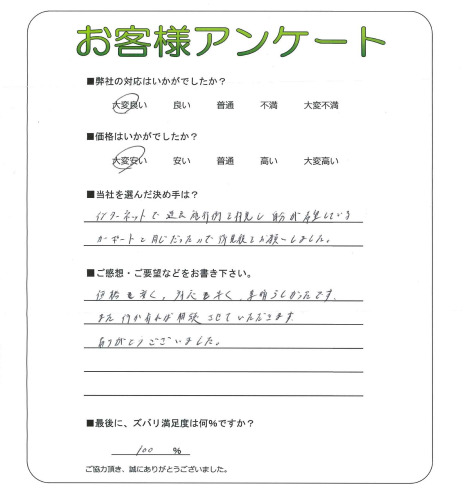 お客様アンケート
■弊社の対応はいかがでしたか？
大変良い 良い 普通 不満 大変不満
■価格はいかがでしたか？
大変安い 安い 普通 高い 大変高い
■当社を選んだ決め手は？
インターネットで過去施行例を拝見し 自分が希望している
カーポートと同じだったので御見積をお願いしました。
■ご感想・ご要望などをお書き下さい。
価格も安く、対応も早く、素晴らしかったです。
また何か有れば相談させていただきます。
ありがとうございました。
■最後に、ズバリ満足度は何%ですか？
100 %
ご協力頂き、誠にありがとうございました。